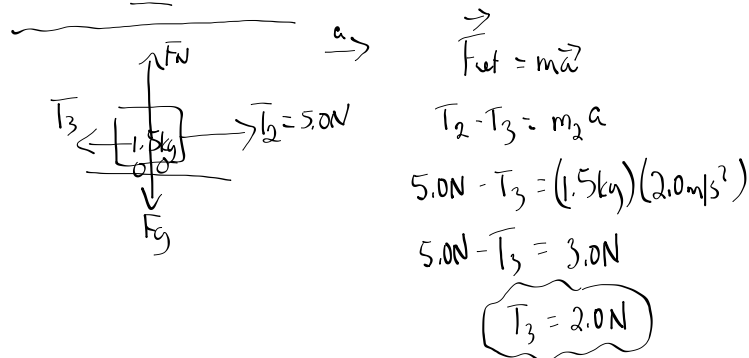 a
F_N
T_3
1.5kg
T_2 = 5.0N
F_g
F_net = ma
T_2 - T_3 = m_2 a
5.0N - T_3 = (1.5kg)(2.0m/s²)
5.0N - T_3 = 3.0N
T_3 = 2.0N